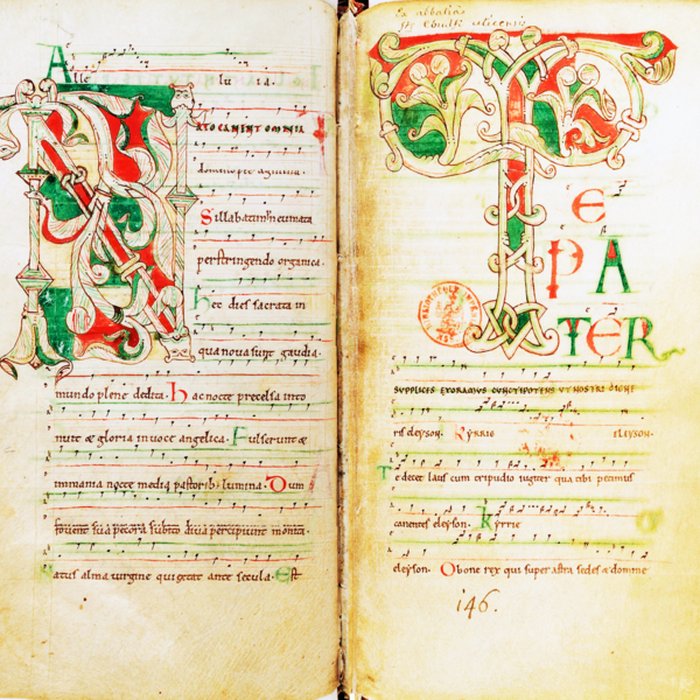 Alle lu ia.
NATO CANENT OMNIA
domino pie agmina.
Sillabatim neumata
perstringendo organica.
Hec dies sacrata in
qua nova sunt gaudia.
mundo plene dedita. Hac nocte precelsa into
nuit & gloria in voce angelica. Fulserunt &
immania nocte media pastorib; lumina. Dum
fovent sua pecora subito diva percipiunt monita.
Natus alma virgine qui extat ante secula. Est
Ex abbatia
sti
TE
PA
TER
SUPPLICES EXORAMUS CUNCTIPOTENS UT NOSTRI DIGNE
ris eleyson. Kyrrie eleyson.
Te decet laus cum tripudio iugiter qua tibi petimus
canentes eleyson. Kyrrie
eleyson. O bone rex qui super astra sedes & domine
146.